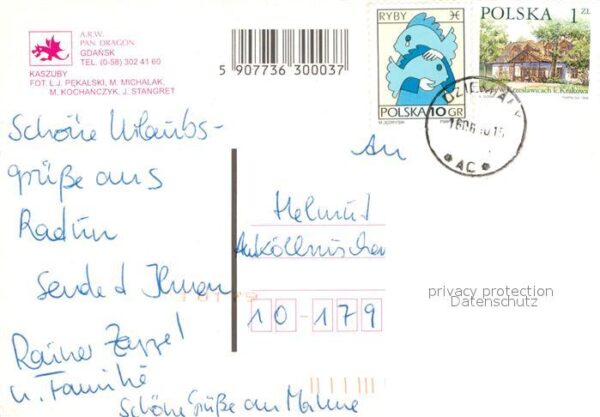 A.R.W.
PAN DRAGON
GDAŃSK
TEL. (0-58) 302 41 60
KASZUBY
FOT. Ł.J. PĘKALSKI, M. MICHALAK,
M. KOCHAŃCZYK, J. STANGRET
5 907736 300037
RYBY
POLSKA 10 GR
POLSKA 1 ZŁ
Krzesławicach k. Krakowa
AC
Schöne Urlaubs-
grüße aus
Radun
sendet Ihnen
Rainer Zappel
u. Familie
Schöne Grüße an
An
Helmut
Anköllnischen
10-179
privacy protection
Datenschutz